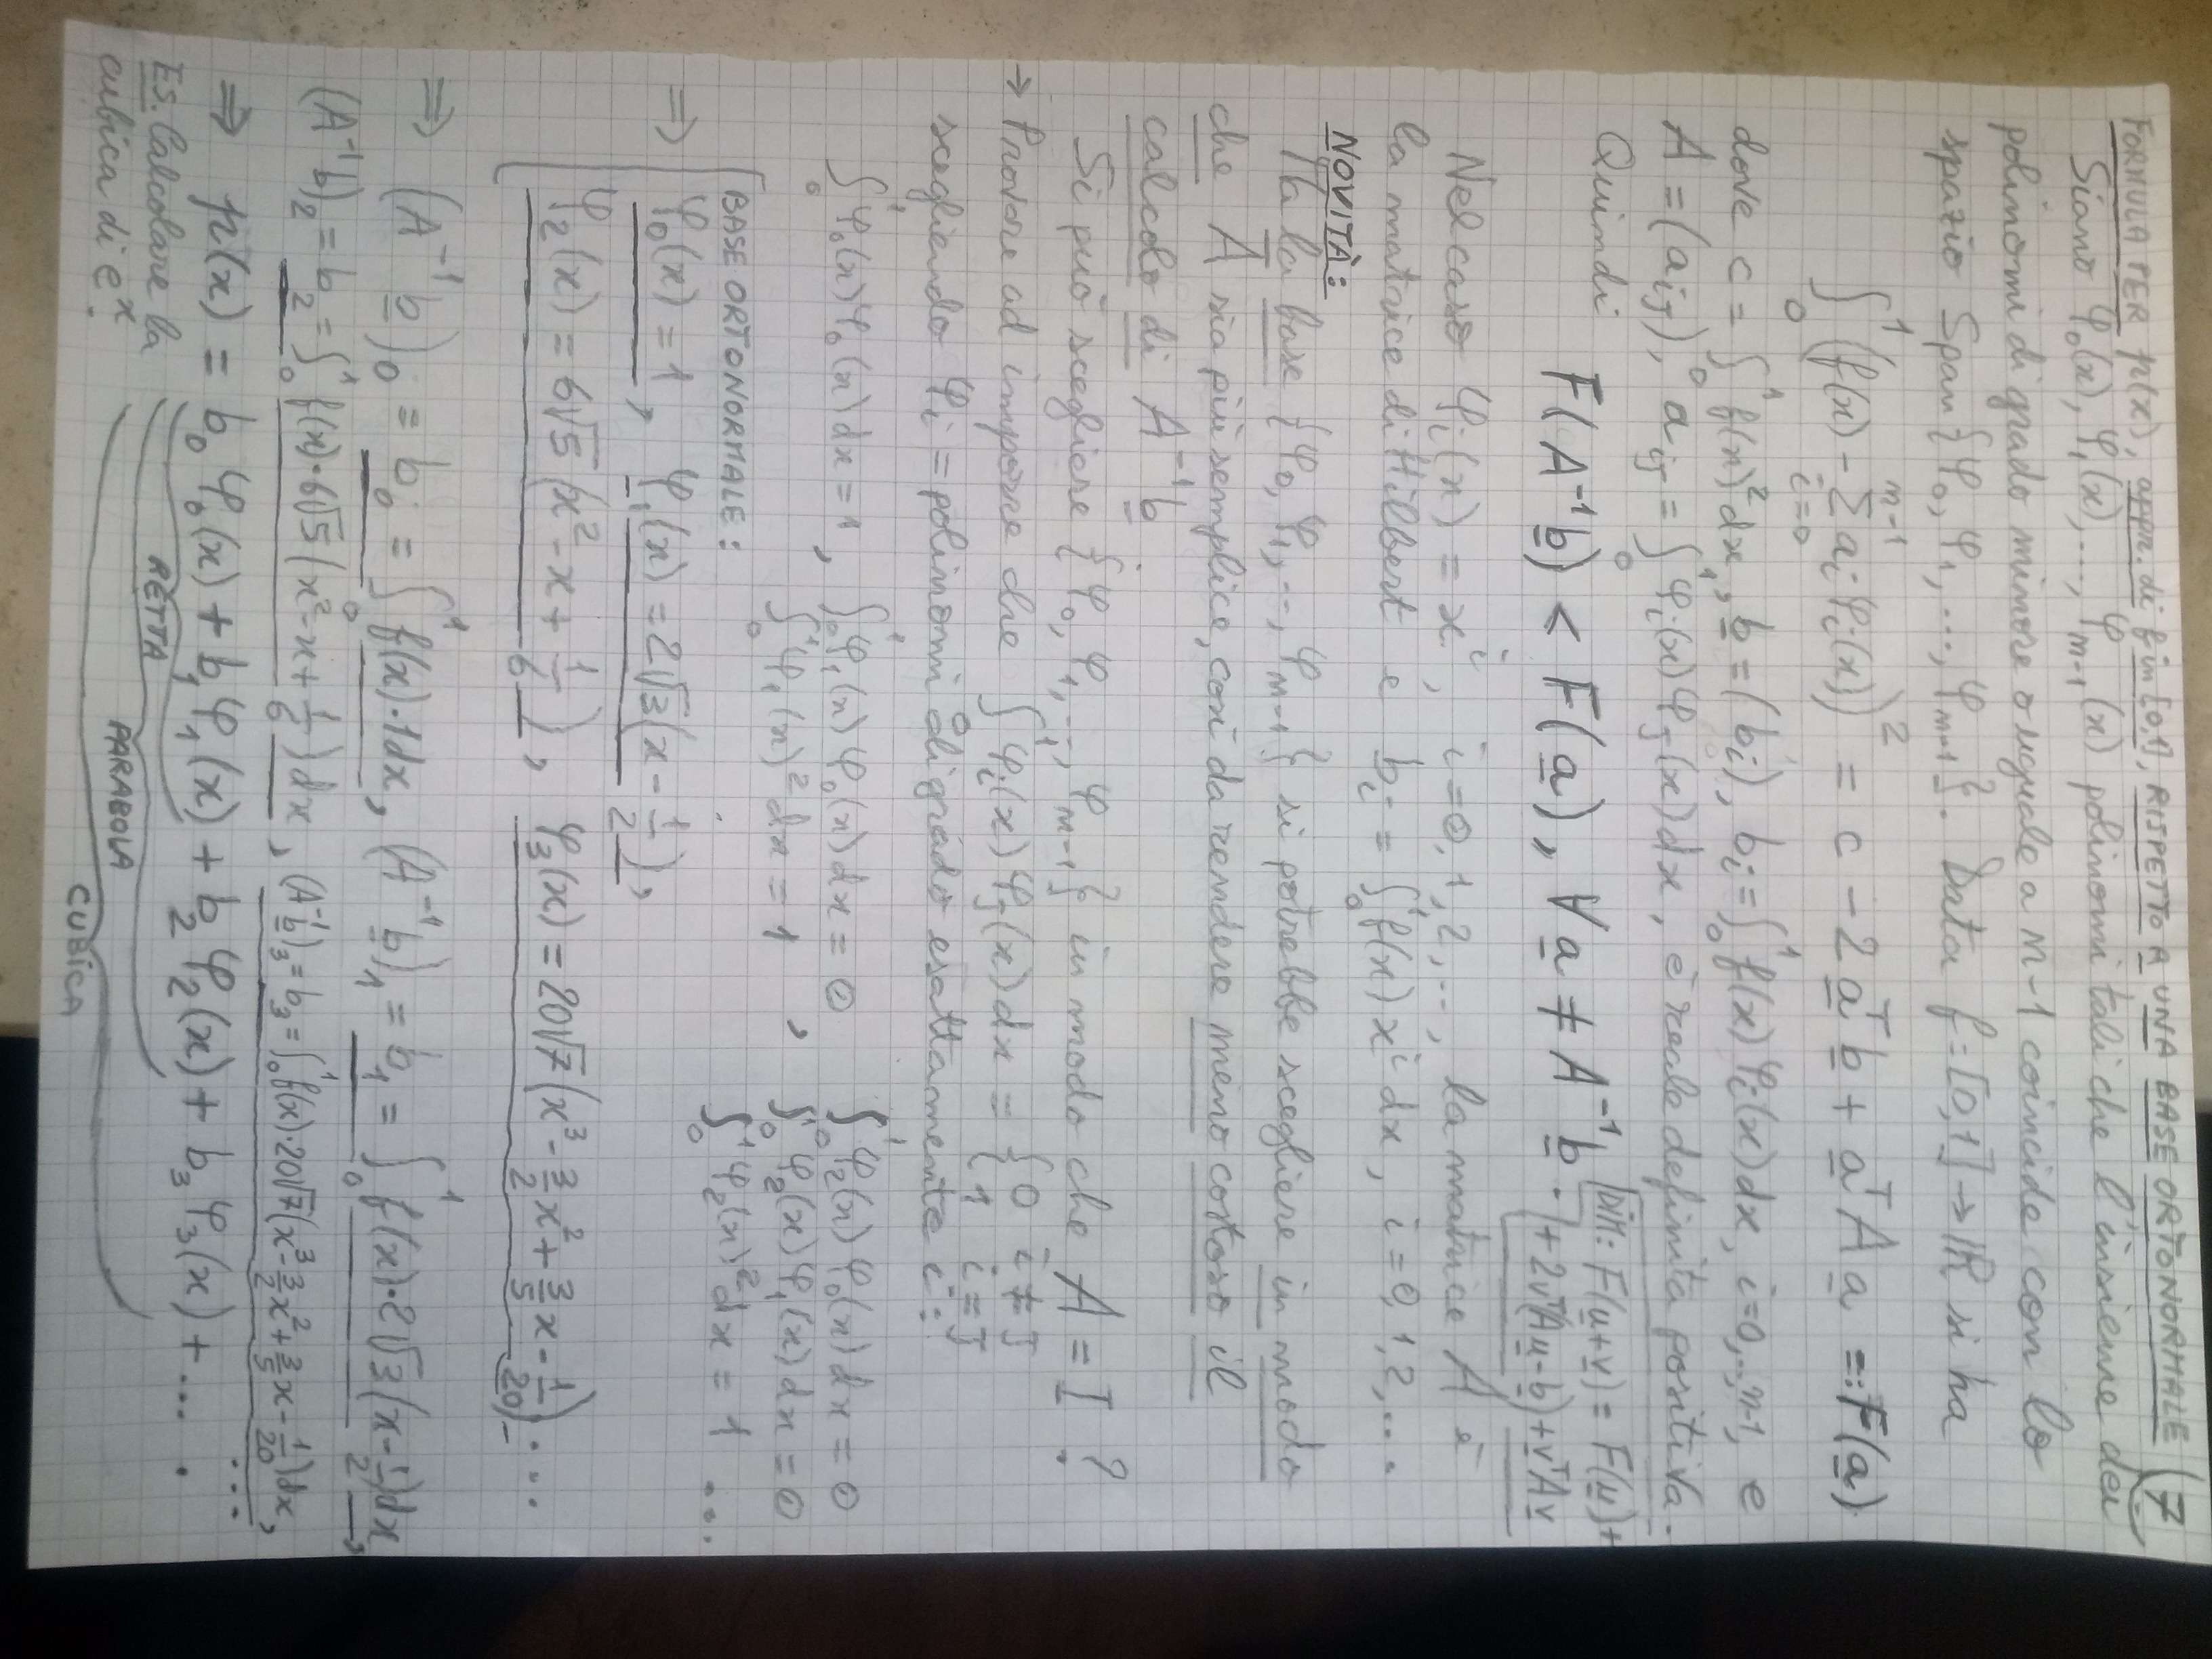 FORMULA PER p(x), appr. di f in [0,1], RISPETTO A UNA BASE ORTONORMALE (7
Siano φ₀(x), φ₁(x),..., φₘ₋₁(x) polinomi tali che l'insieme dei
polinomi di grado minore o uguale a m-1 coincide con lo
spazio Span{φ₀, φ₁,..., φₘ₋₁}. Data f=[0,1]→ℝ si ha
∫₀¹ (f(x) - Σᵢ₌₀ᵐ⁻¹ aᵢφᵢ(x))² = c - 2aᵀb + aᵀAa =: F(a)
dove c = ∫₀¹ f(x)²dx, b = (bᵢ), bᵢ = ∫₀¹ f(x)φᵢ(x)dx, i=0,..,m-1, e
A = (aᵢⱼ), aᵢⱼ = ∫₀¹ φᵢ(x)φⱼ(x)dx, è reale definita positiva.
Quindi F(A⁻¹b) < F(a), ∀a ≠ A⁻¹b. [DIM: F(u+v) = F(u)+
+2vᵀ(Au-b)+vᵀAv
Nel caso φᵢ(x) = xⁱ, i=0,1,2,..., la matrice A è
la matrice di Hilbert e bᵢ = ∫₀¹ f(x)xⁱdx, i=0,1,2,...
NOVITÀ:
Ma la base {φ₀, φ₁,..., φₘ₋₁} si potrebbe scegliere in modo
che A sia più semplice, così da rendere meno costoso il
calcolo di A⁻¹b
Si può scegliere {φ₀, φ₁,..., φₘ₋₁} in modo che A = I ?
→ Provare ad imporre che ∫₀¹ φᵢ(x)φⱼ(x)dx = {0 i≠j {1 i=j
scegliendo φᵢ = polinomi di grado esattamente i:
∫₀¹ φ₀(x)φ₀(x)dx = 1, ∫₀¹ φ₁(x)φ₀(x)dx = 0, ∫₀¹ φ₂(x)φ₀(x)dx = 0
∫₀¹ φ₁(x)²dx = 1 ∫₀¹ φ₂(x)φ₁(x)dx = 0
∫₀¹ φ₂(x)²dx = 1 ...
[BASE ORTONORMALE:
⇒ φ₀(x) = 1, φ₁(x) = 2√3(x - 1/2),
φ₂(x) = 6√5(x² - x + 1/6), φ₃(x) = 20√7(x³ - 3/2x² + 3/5x - 1/20)....
⇒ (A⁻¹b)₀ = b₀ = ∫₀¹ f(x)·1dx, (A⁻¹b)₁ = b₁ = ∫₀¹ f(x)·2√3(x - 1/2)dx,
(A⁻¹b)₂ = b₂ = ∫₀¹ f(x)·6√5(x² - x + 1/6)dx, (A⁻¹b)₃ = b₃ = ∫₀¹ f(x)·20√7(x³ - 3/2x² + 3/5x - 1/20)dx,
...
⇒ p(x) = b₀φ₀(x) + b₁φ₁(x) + b₂φ₂(x) + b₃φ₃(x) + ... .
RETTA
Es. Calcolare la
PARABOLA
cubica di eˣ.
CUBICA